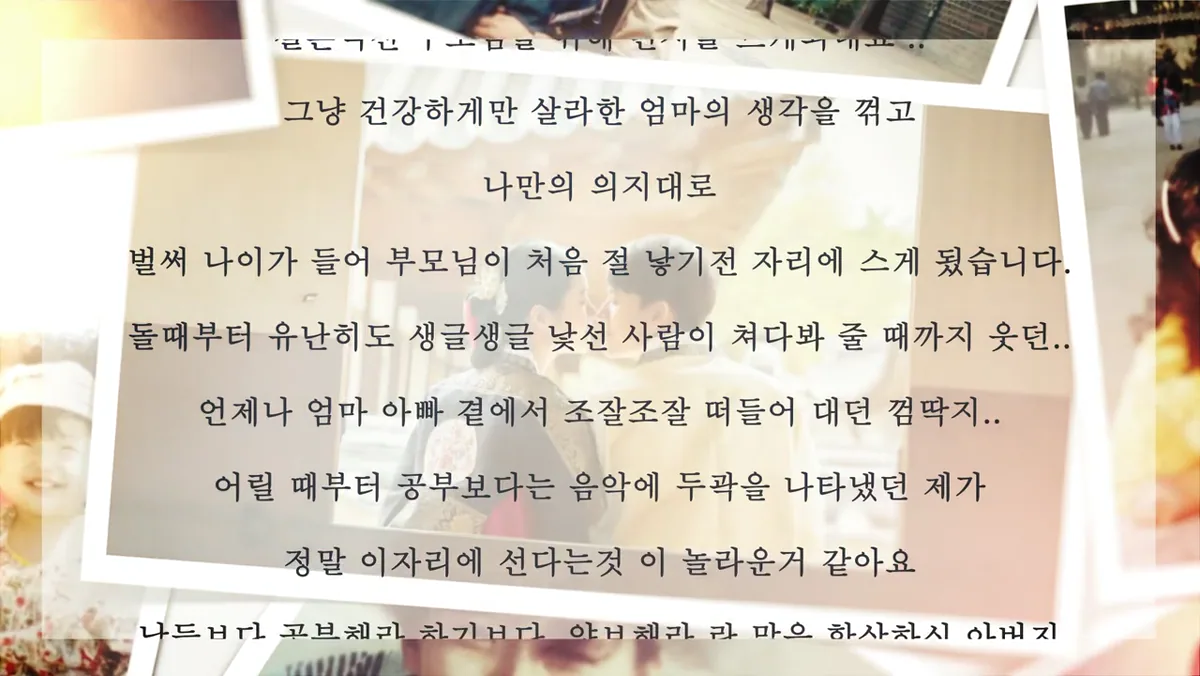 그냥 건강하게만 살라한 엄마의 생각을 꺾고
나만의 의지대로
벌써 나이가 들어 부모님이 처음 절 낳기전 자리에 스게 됬습니다.
돌때부터 유난히도 생글생글 낯선 사람이 쳐다봐 줄 때까지 웃던..
언제나 엄마 아빠 곁에서 조잘조잘 떠들어 대던 껌딱지..
어릴 때부터 공부보다는 음악에 두곽을 나타냈던 제가
정말 이자리에 선다는것 이 놀라운거 같아요